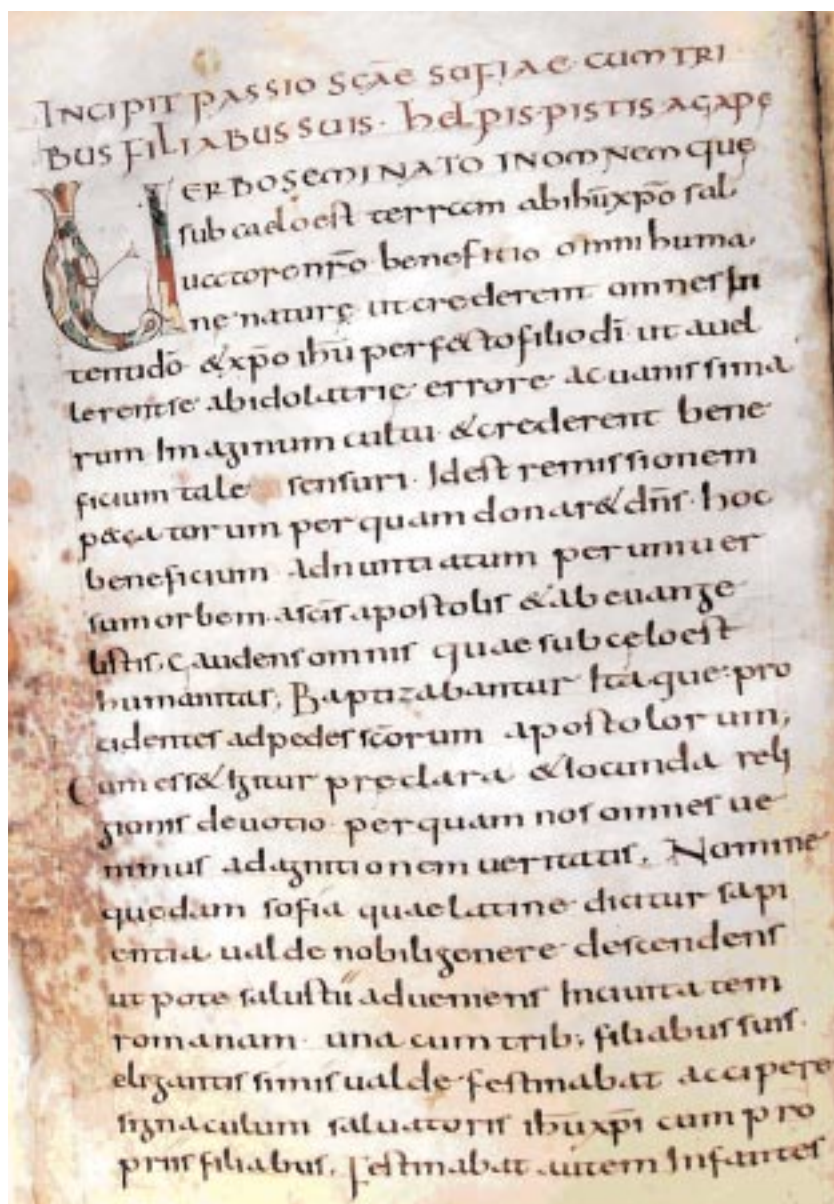 INCIPIT PASSIO SCAE SOFIAE CUM TRI
BUS FILIABUS SUIS · HELPIS · PISTIS AGAPE
VERBO SEMINATO IN OMNEM QUE
sub caelo est terram ab ihu xpo sal
uatore nro beneficio omni huma
ne nature ut crederent omnes In
tenti do & xpo ihu perfecto filio di ut auel
lerent se ab idolatrie errore ac uanissima
rum Imaginum cultu & crederent bene
ficium tale sensuri · Id est remissionem
peccatorum per quam donar& dns · hoc
beneficium adnuntiatum per uniuer
sum orbem a scis apostolis & ab euange
listis, gaudens omnis quae sub celo est
humanitas, Baptizabantur Itaque pro
cidentes ad pedes scorum apostolorum,
Cum ess& Igitur preclara & Iocunda reli
gionis deuotio per quam nos omnes ue
nimus ad agnitionem ueritatis, Nomine
quedam sofia quae latine dicitur sapi
entia ualde nobili genere descendens
ut pote salustii adueniens In ciuitatem
romanam una cum trib; filiabus suis ·
elegantissimis ualde festinabat accipere
signaculum saluatoris ihu xpi cum pro
priis filiabus, Festinabat autem Infantes